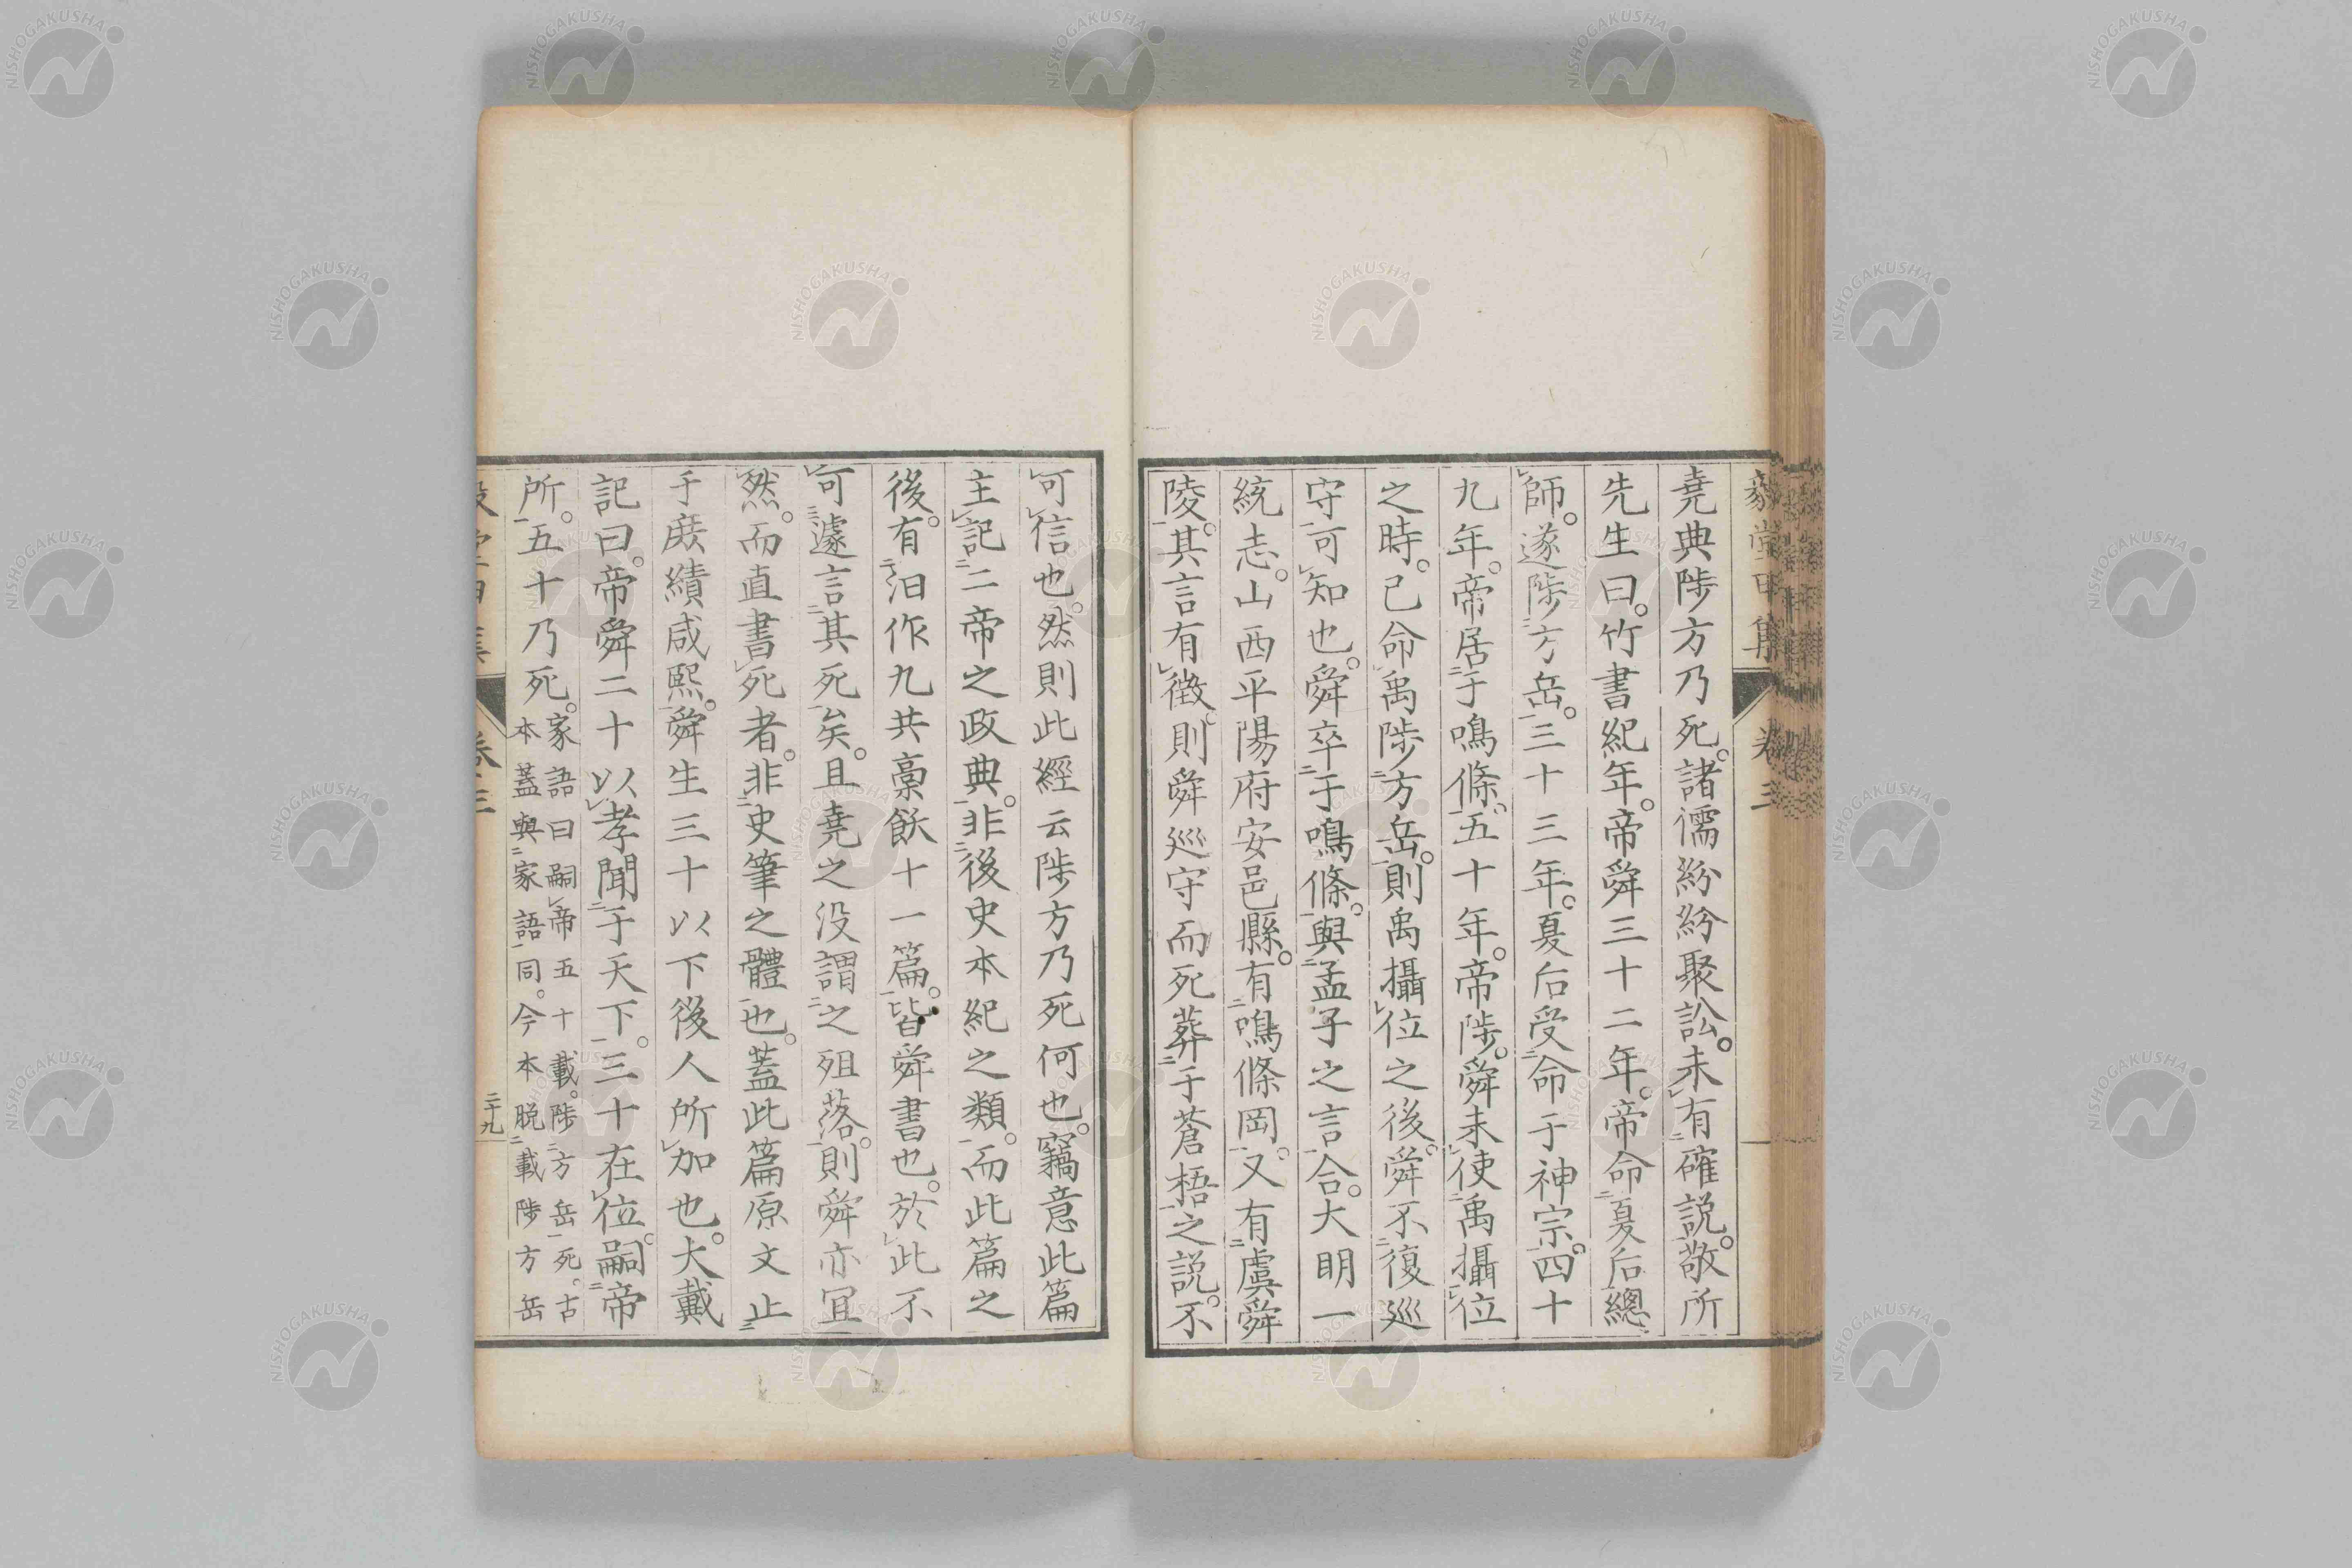 堯典陟方乃死。諸儒紛紛聚訟。未有確説。敬所
先生曰。竹書紀年。帝舜三十二年。帝命夏后總
師。遂陟方岳。三十三年。夏后受命于神宗。四十
九年。帝居于鳴條。五十年。帝陟。舜未使禹攝位
之時。已命禹陟方岳。則禹攝位之後。舜不復巡
守可知也。舜卒于鳴條。與孟子之言合。大明一
統志。山西平陽府安邑縣。有鳴條岡。又有虞舜
陵。其言有徵。則舜巡守而死葬于蒼梧之説。不
可信也。然則此經云陟方乃死何也。竊意此篇
主記二帝之政典。非後史本紀之類。而此篇之
後。有汨作九共稾飫十一篇。皆舜書也。於此不
可遽言其死矣。且堯之没謂之殂落。則舜亦冝
然。而直書死者。非史筆之體也。蓋此篇原文止
于庶績咸熙。舜生三十以下後人所加也。大戴
記曰。帝舜二十以孝聞于天下。三十在位。嗣帝
所。五十乃死。家語曰嗣帝五十載。陟方岳死。古
本蓋與家語同。今本脱載陟方岳
卷三
二十九
NISHOGAKUSHA